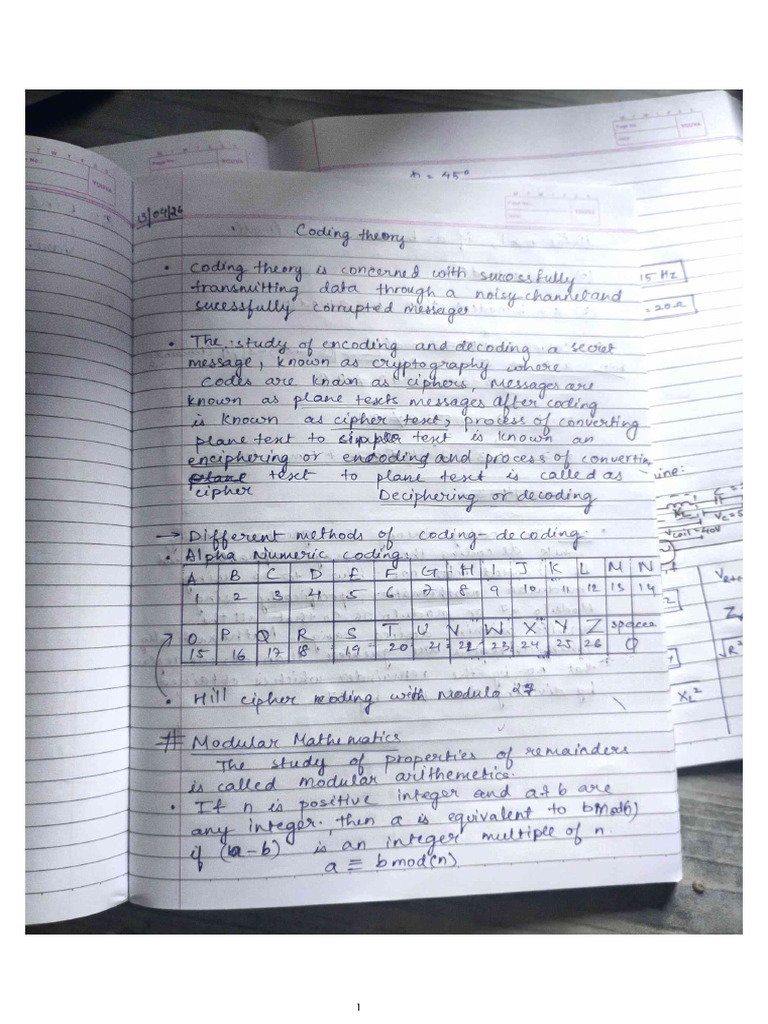 n = 45°
13/04/26
Coding theory
• Coding theory is concerned with sucessfully
transmitting data through a noisy channel and
sucessfully corrupted messages
• The study of encoding and decoding a secret
message, known as cryptography where
codes are known as ciphers, Messages are
known as plane texts messages after coding
is known as cipher text, process of converting
plane text to simpler text is known an
enciphering or encoding and process of converting
plane text to plane text is called as
cipher Deciphering or decoding
→ Different methods of coding-decoding:
• Alpha Numeric coding:
A B C D E F G H I J K L M N
1 2 3 4 5 6 7 8 9 10 11 12 13 14
O P Q R S T U V W X Y Z spaces
15 16 17 18 19 20 21 22 23 24 25 26 0
• Hill cipher moding with Modulo 27
# Modular Mathematics
The study of properties of remainders
is called modular arithemetics.
• If n is positive integer and a & b are
any integer, then a is equivalent to b Mod(n)
if (a-b) is an integer multiple of n.
a ≡ b mod(n)
15 Hz
= 20Ω
Page No.:
Date:
YOUVA
1